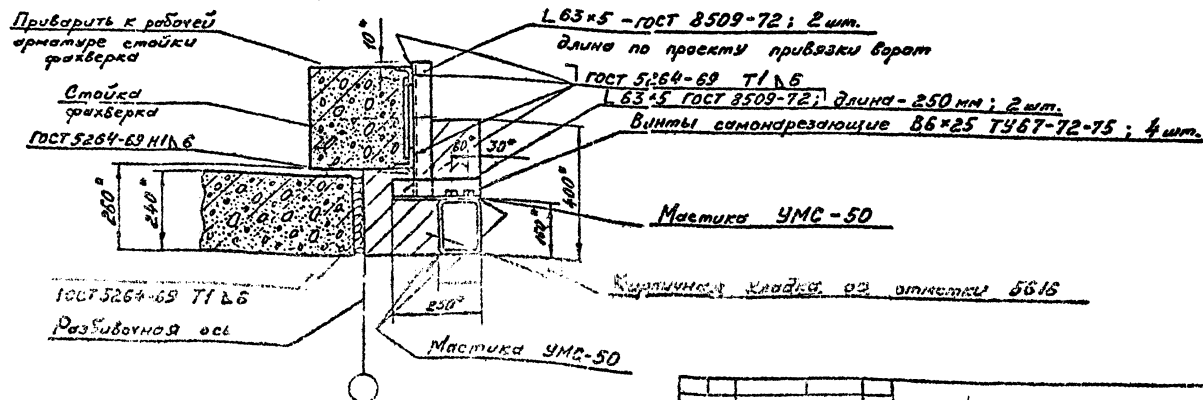 Приварить к рабочей
арматуре стойки
фахверка
Стойка
фахверка
ГОСТ 5264-69 Н1 ⊿ 6
260*
240*
ГОСТ 5264-69 Т1 ⊿ 6
Разбивочная ось
10*
L 63×5 - ГОСТ 8509-72; 2 шт.
длина по проекту привязки ворот
ГОСТ 5264-69 Т1 ⊿ 6
L 63×5 ГОСТ 8509-72; длина - 250 мм; 2 шт.
Винты самонарезающие В6×25 ТУ67-72-75; 4 шт.
60
30*
400*
160*
Мастика УМС-50
Кирпичная кладка до отметки
250*
Мастика УМС-50